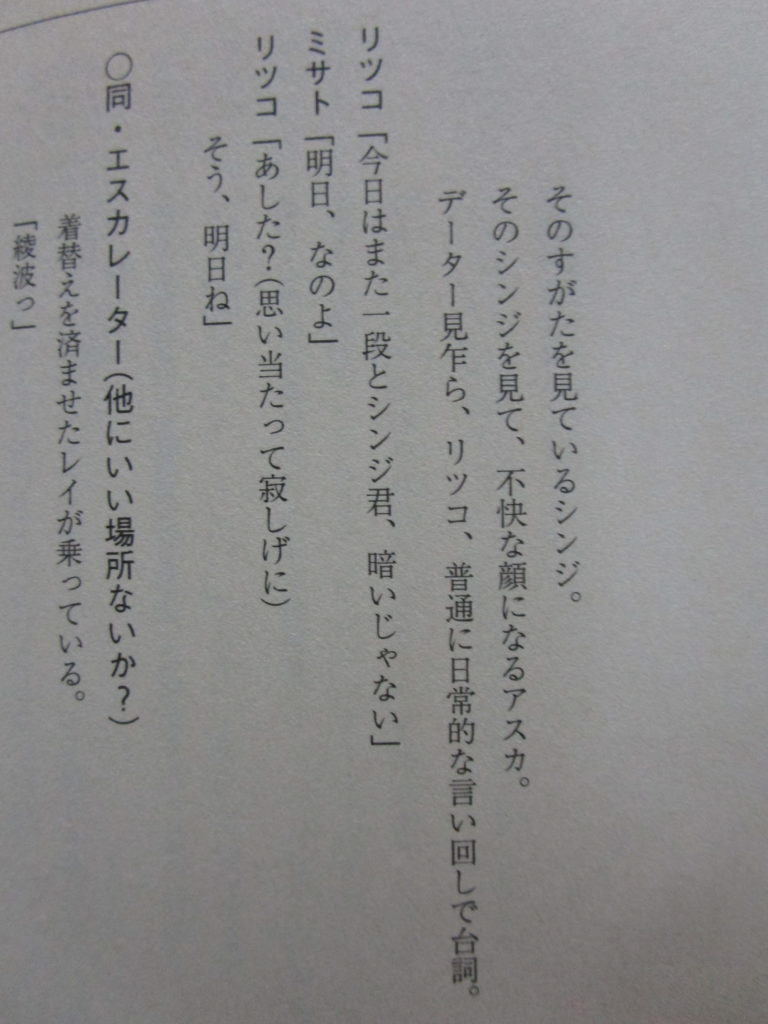 そのすがたを見ているシンジ。
そのシンジを見て、不快な顔になるアスカ。
データー見乍ら、リツコ、普通に日常的な言い回しで台詞。
リツコ「今日はまた一段とシンジ君、暗いじゃない」
ミサト「明日、なのよ」
リツコ「あした？（思い当たって寂しげに）
そう、明日ね」
○同・エスカレーター（他にいい場所ないか？）
着替えを済ませたレイが乗っている。
「綾波っ」